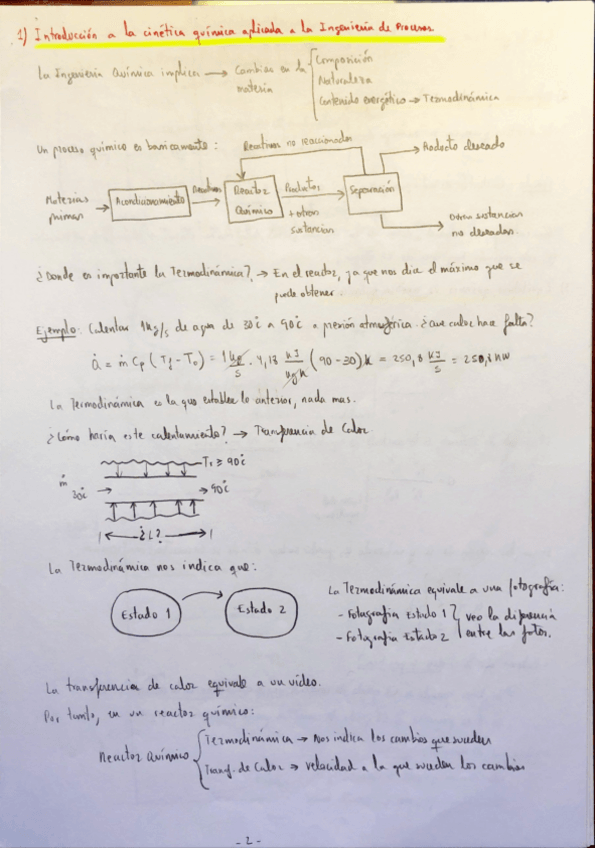 1) Introducción a la cinética química aplicada a la Ingeniería de Procesos
La Ingeniería Química implica → Cambios en la materia { Composición
Naturaleza
Contenido energético → Termodinámica
Un proceso químico es basicamente:
Reactivos no reaccionados
Producto deseado
Materias primas → Acondicionamiento → Reactivos → Reactor Químico → Productos + otras sustancias → Separación
Otras sustancias no deseadas.
¿Donde es importante la Termodinámica? → En el reactor, ya que nos dice el máximo que se
puede obtener.
Ejemplo: Calentar 1 kg/s de agua de 30°C a 90°C a presión atmosférica. ¿Que calor hace falta?
Q̇ = ṁ Cp (Tf - To) = 1 kg/s · 4,18 kJ/kg K (90 - 30) K = 250,8 kJ/s = 250,8 kW
La Termodinámica es la que establece lo anterior, nada mas.
¿Cómo haría este calentamiento? → Transferencia de Calor
Ts ≥ 90°C
ṁ
30°C → → 90°C
¿L?
La Termodinámica nos indica que:
Estado 1 → Estado 2
La Termodinámica equivale a una fotografía:
- Fotografía Estado 1 } veo la diferencia
- Fotografía Estado 2 } entre las fotos.
La transferencia de calor equivale a un vídeo.
Por tanto, en un reactor químico:
Reactor Químico { Termodinámica → Nos indica los cambios que suceden
Transf. de Calor → velocidad a la que suceden los cambios
- 2 -